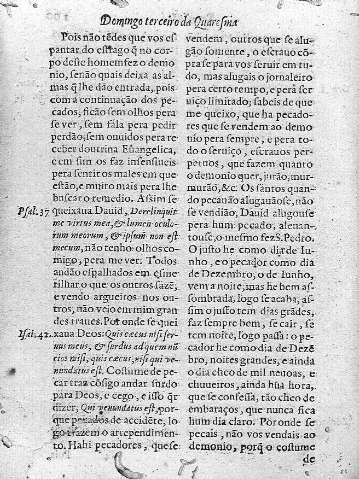 Domingo terceiro da Quaresma
Pois não tẽdes que vos es-
pantar do estrago q̃ no cor-
po deste homem fez o demo
nio, senão quais deixa as al-
mas q̃ lhe dão entrada, pois
com a continuação dos pe-
cados; ficão sem olhos pera
se ver, sem fala pera pedir
perdão, sem ouuidos pera re
ceber doutrina Euangelica,
e em fim os faz insensiueis
pera sentir os males em que
estão, e muito mais pera lhe
buscar o remedio. Assim se
Psal. 37 queixaua Dauid, Dereliquit
me virtus mea, & lumen oculo-
rum meorum, & ipsum non est
mecum, não tenho olhos co-
migo, pera me ver. Todos
andão espalhados em esmé
rilhar o que os outros fazẽ,
e vendo argueiros nos ou-
tros, não veio em mim gran
des traues. Por onde se quei
Isai. 42. xaua Deos: Quis cæcus nisi ser-
uus meus, & surdus ad quem nũ
cios misi, quis cæcus, nisi qui ve-
nundatus est. Costume de pe-
car traz cõsigo andar surdo
para Deos, e cego, e isso q̃r
dizer, Qui venundatus est, por-
que pecados de accidẽte, lo-
go trazem o arrependimen-
to. Hahi pecadores, que se
vendem, outros que se alu-
gão somente, o escrauo cõ-
pra se para vos seruir em tu-
do, mas alugais o jornaleiro
pera certo tempo, e pera ser
uiço limitado; sabeis de que
me queixo, que ha pecado-
res que se vendem ao demo
nio pera sempre, e pera to-
do o seruiço, escrauos per-
petuos, que fazem quanto
o demonio quer, jurão, mur-
murão, &c. Os santos quan-
do pecauão alugauãose, não
se vendião, Dauid alugouse
pera hum pecado, aleuan-
touse, o mesmo fez S. Pedro.
O justo he como dia de Iu-
nho, e o pecador como dia
de Dezembro, o de Iunho,
vem a noite, mas he bem as-
sombrada, logo se acaba, as-
sim o justo tem dias grãdes,
faz sempre bem, se cair, se
tem noite, logo passa: o pe-
cador he como dia de Dezẽ-
bro, noites grandes, e ainda
o dia cheo de mil neuoas, e
chuueiros, ainda hũa hora,
que se confessa, tão cheo de
embaraços, que nunca fica
hum dia claro. Por onde se
pecais, não vos vendais ao
demonio, porq̃ o costume
de